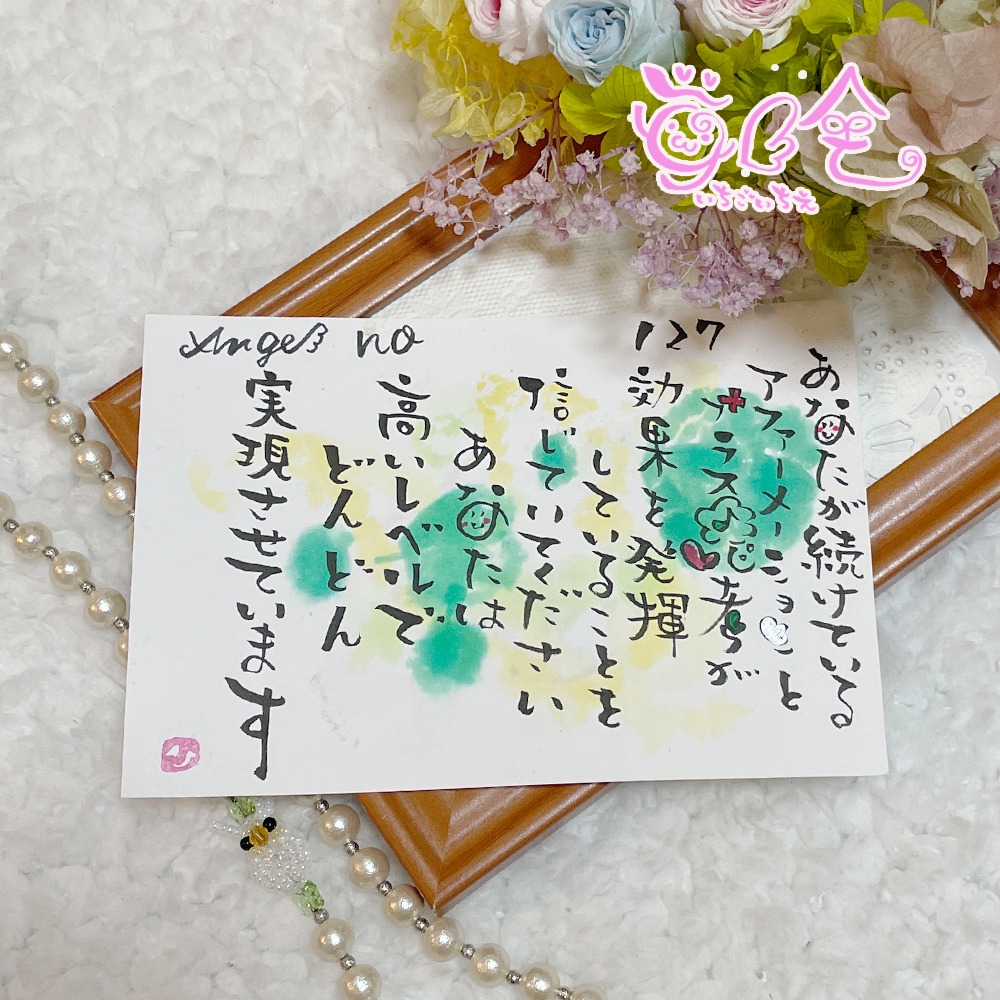 Angel no 127
あなたが続けている
アファーメーションと
プラス思考が
効果を発揮
していることを
信じていてください
あなたは
高いレベルで
どんどん
実現させています
いちごいちえ